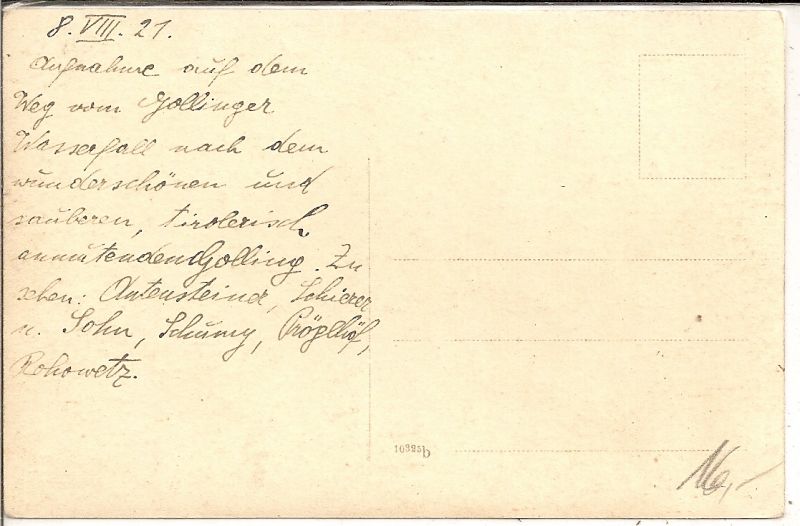 8. VIII. 21.
Aufnahme auf dem
Weg vom Gollinger
Wasserfall nach dem
wunderschönen und
sauberen, tirolerisch
anmutenden Golling. Zu
sehen: Antensteiner, Schierer
u. Sohn, Schumy, Pröglhöf,
Rohowetz.
103950
16,-